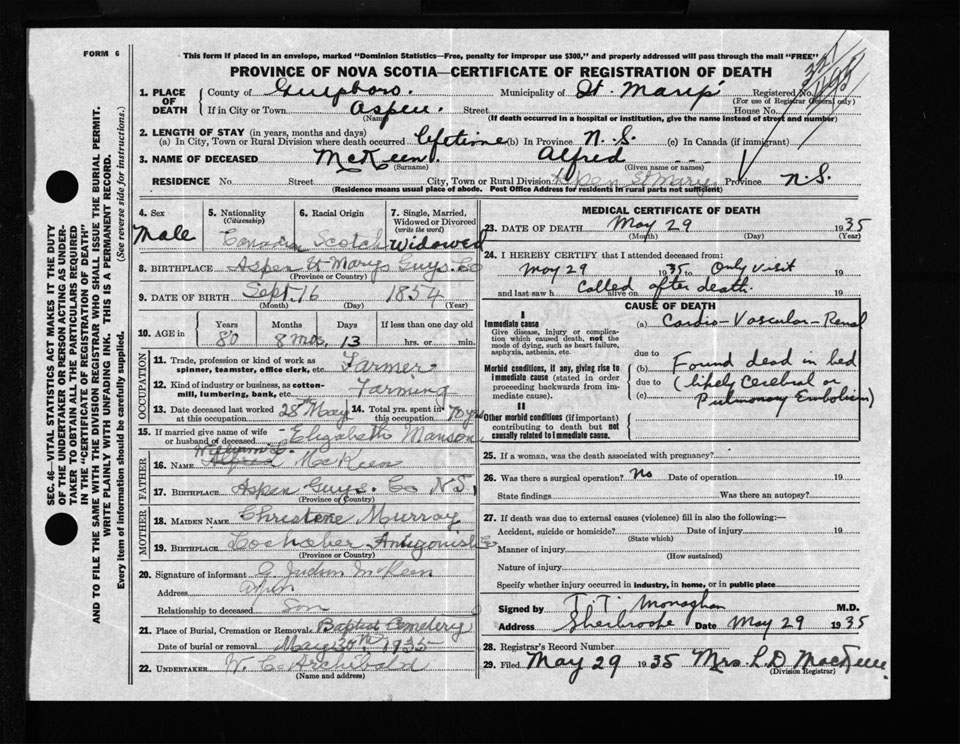 FORM 6
This form if placed in an envelope, marked "Dominion Statistics—Free, penalty for improper use $300," and properly addressed will pass through the mail "FREE"
PROVINCE OF NOVA SCOTIA—CERTIFICATE OF REGISTRATION OF DEATH
1. PLACE OF DEATH County of Guysboro. Municipality of St. Marys Registered No.
(For use of Registrar General only)
If in City or Town Aspen Street House No.
(Name) (If death occurred in a hospital or institution, give the name instead of street and number)
2. LENGTH OF STAY (in years, months and days)
(a) In City, Town or Rural Division where death occurred lifetime (b) In Province N. S. (c) In Canada (if immigrant)
3. NAME OF DECEASED McKeen. Alfred
(Surname) (Given name or names)
RESIDENCE No. Street City, Town or Rural Division Aspen St Marys Province N.S.
(Residence means usual place of abode. Post Office Address for residents in rural parts not sufficient)
4. Sex Male
5. Nationality (Citizenship) Canadian
6. Racial Origin Scotch
7. Single, Married, Widowed or Divorced (write the word) Widowed
8. BIRTHPLACE Aspen St Marys Guys. Co
(Province or Country)
9. DATE OF BIRTH Sept. 16 1854
(Month) (Day) (Year)
10. AGE in Years Months Days If less than one day old
80 8 mos. 13 hrs. or min.
OCCUPATION
11. Trade, profession or kind of work as spinner, teamster, office clerk, etc. Farmer
12. Kind of industry or business, as cotton-mill, lumbering, bank, etc. Farming
13. Date deceased last worked at this occupation 28th May 14. Total yrs. spent in this occupation 70 yrs
15. If married give name of wife or husband of deceased Elizabeth Manson
FATHER
William
16. NAME Alfred McKeen
17. BIRTHPLACE Aspen Guys. Co N.S.
(Province or Country)
MOTHER
18. MAIDEN NAME Christene Murray
19. BIRTHPLACE Lochaber Antigonish Co
(Province or Country)
20. Signature of informant McKeen
Address Aspen
Relationship to deceased Son
21. Place of Burial, Cremation or Removal Baptist Cemetery
Date of burial or removal May 30th 1935
22. UNDERTAKER W. C. Archibald
(Name and address)
MEDICAL CERTIFICATE OF DEATH
23. DATE OF DEATH May 29 1935
(Month) (Day) (Year)
24. I HEREBY CERTIFY that I attended deceased from:
May 29 1935 to Only visit 19
and last saw h alive on Called after death. 19
CAUSE OF DEATH
I
Immediate cause
Give disease, injury or complication which caused death, not the mode of dying, such as heart failure, asphyxia, asthenia, etc.
(a) Cardio-Vascular-Renal
due to
Morbid conditions, if any, giving rise to immediate cause (stated in order proceeding backwards from immediate cause).
(b) Found dead in bed
due to (likely Cerebral or
(c) Pulmonary Embolism)
II
Other morbid conditions (if important) contributing to death but not causally related to immediate cause
25. If a woman, was the death associated with pregnancy?
26. Was there a surgical operation? No Date of operation 19
State findings Was there an autopsy?
27. If death was due to external causes (violence) fill in also the following:—
Accident, suicide or homicide? Date of injury 19
(State which)
Manner of injury
(How sustained)
Nature of injury
Specify whether injury occurred in industry, in home, or in public place
Signed by T. T. Monaghan M.D.
Address Sherbrooke Date May 29 1935
28. Registrar's Record Number
29. Filed May 29 1935 Mrs. L. D. MacKeen
(Division Registrar)
SEC. 46—VITAL STATISTICS ACT MAKES IT THE DUTY
OF THE UNDERTAKER OR PERSON ACTING AS UNDER-
TAKER TO OBTAIN ALL THE PARTICULARS REQUIRED
IN THE "CERTIFICATE OF REGISTRATION OF DEATH"
AND TO FILE THE SAME WITH THE DIVISION REGISTRAR WHO SHALL ISSUE THE BURIAL PERMIT.
WRITE PLAINLY WITH UNFADING INK. THIS IS A PERMANENT RECORD.
Every item of information should be carefully supplied. (See reverse side for instructions.)